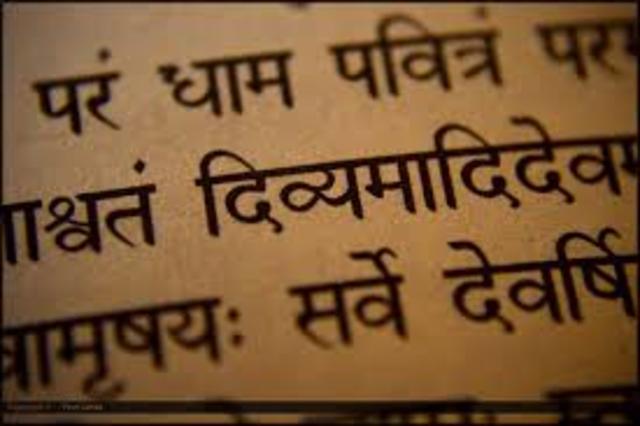 परं धाम पवित्रं पर
ाश्वतं दिव्यमादिदेवम
वामृषयः सर्वे देवर्षि